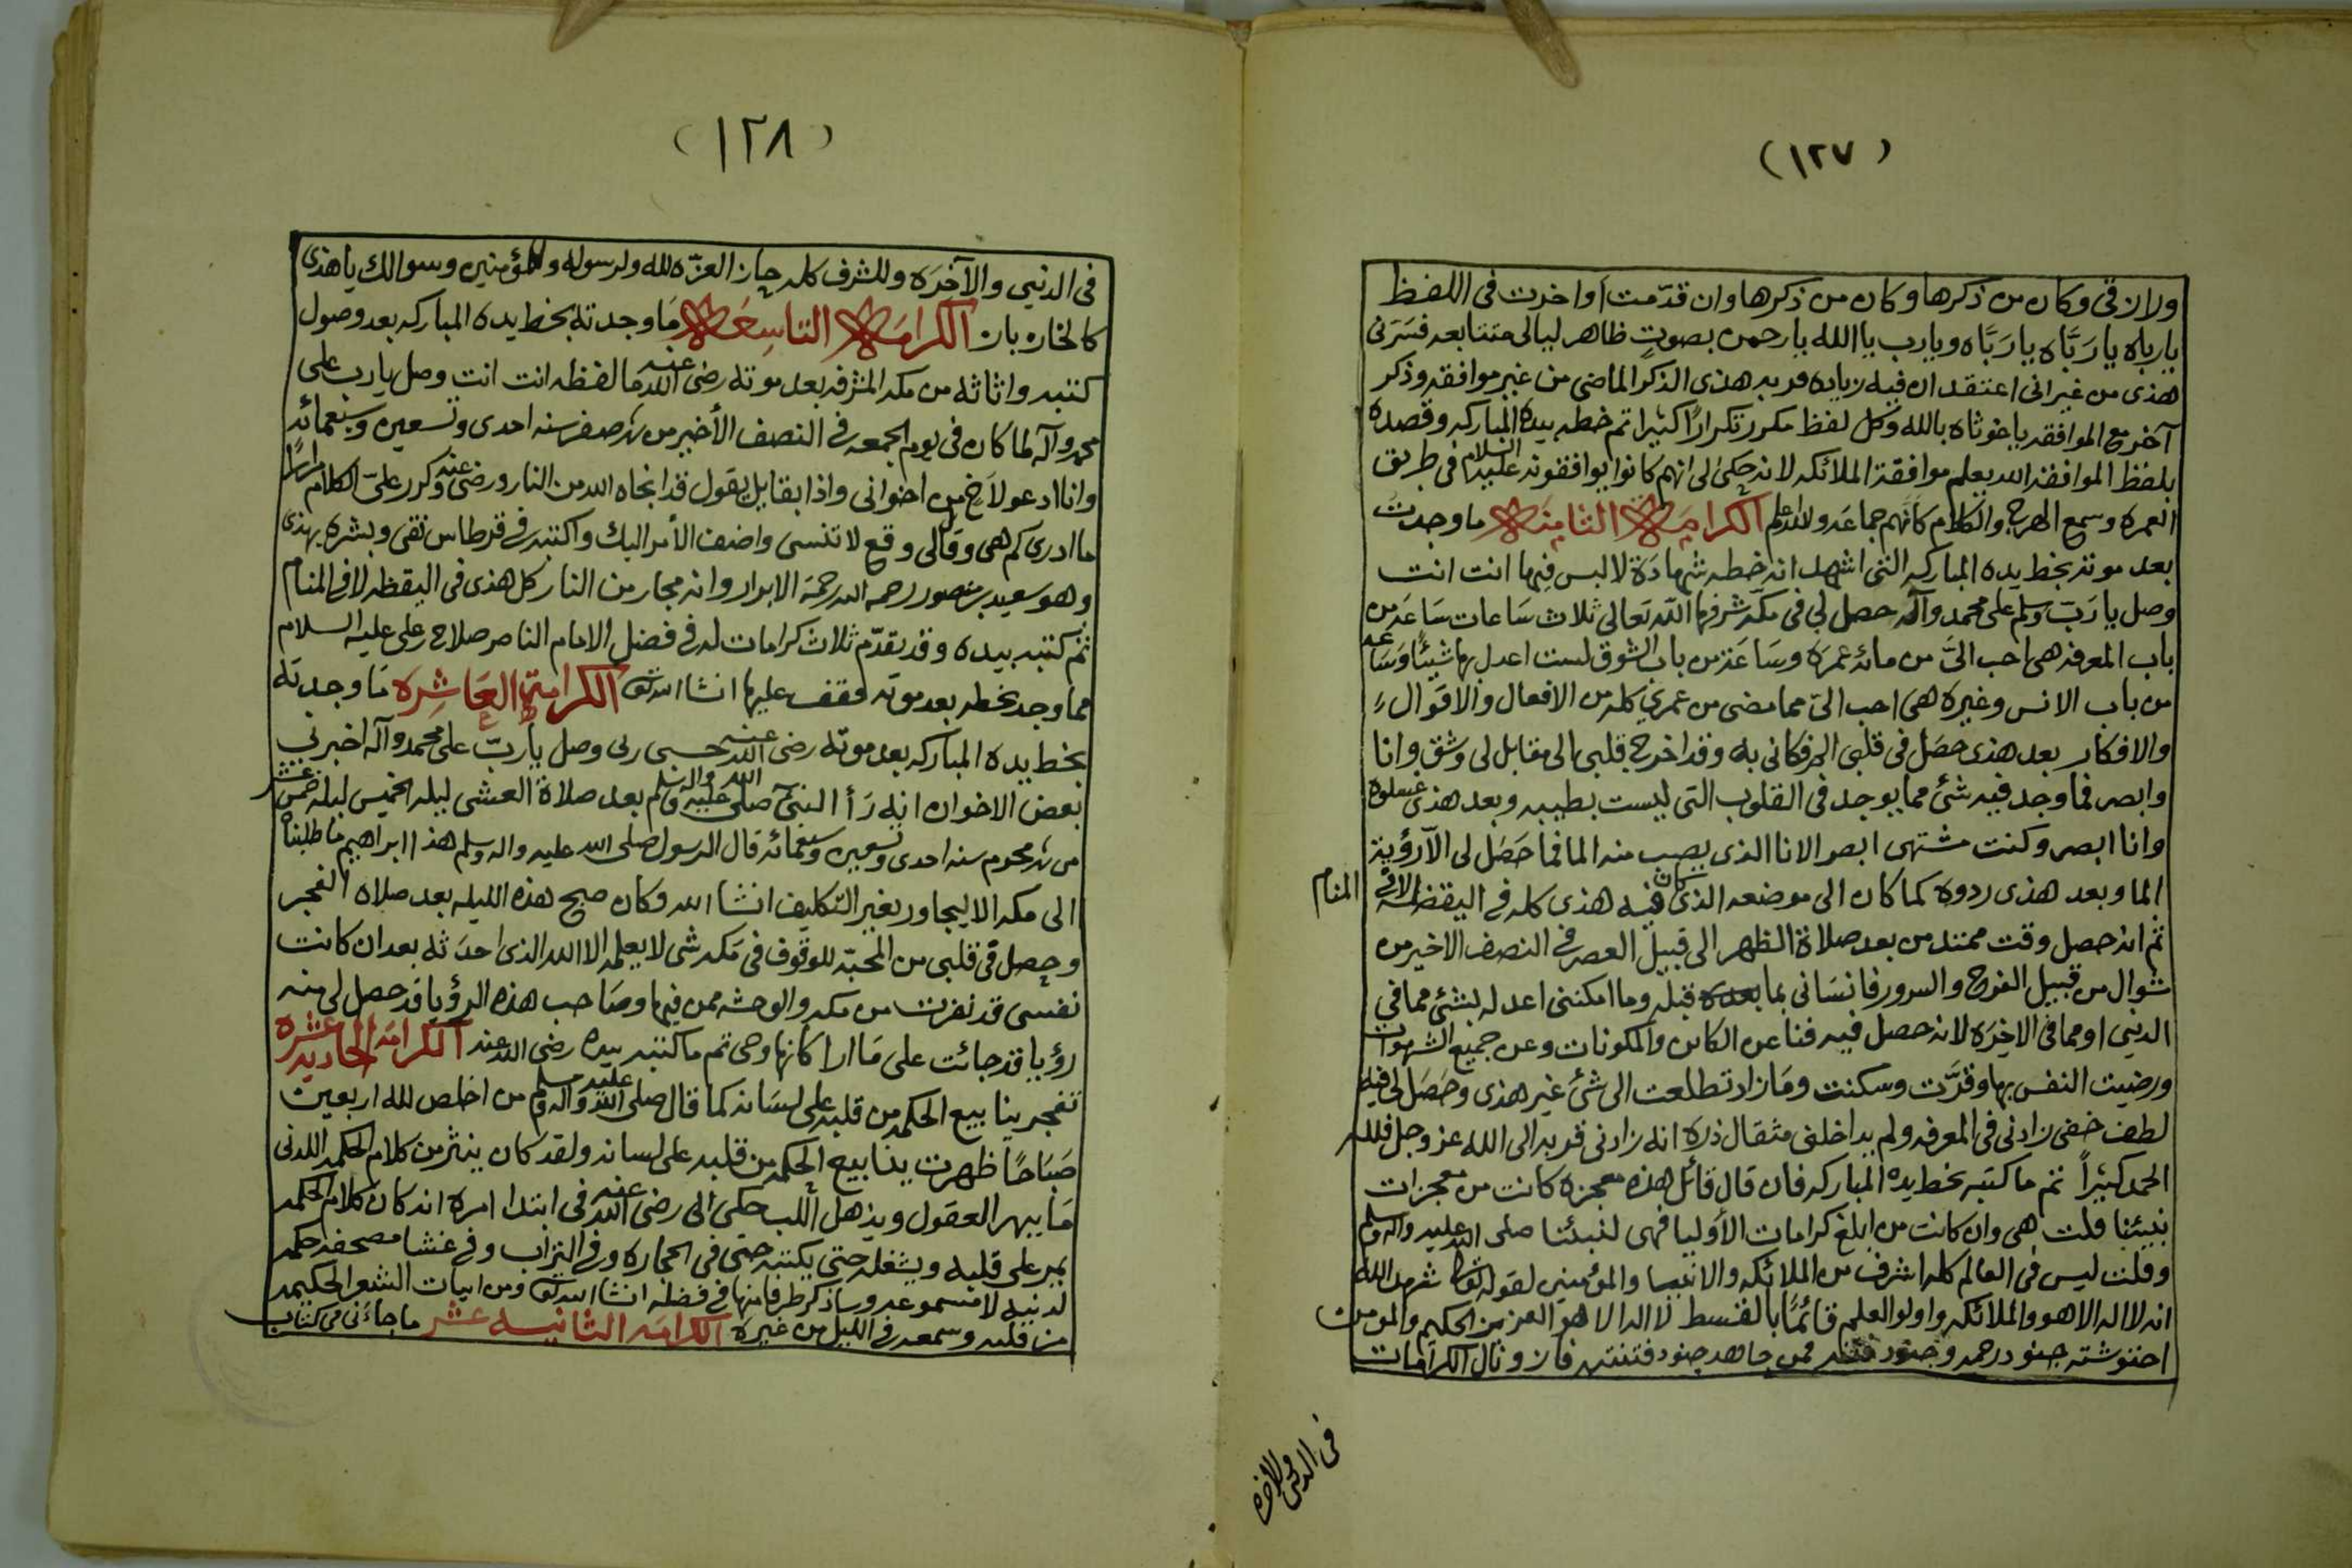 (١٢٧)
ولازقى وكان من ذكرها وكان من ذكرها وان قدمت أو اخرت فى اللفظ
يارباه يا رَبَّاه يا رَبَّاه ويارب يا الله يا رحمن بصوت ظاهر ليالى متتابعه فسرنى
هذى من غير انى اعتقد ان فيه زياده قربه هذى الذكر الماضى من غير موافقه وذكر
آخر مع الموافقه يا غوثاه بالله وكل لفظ مكرر تكرارًا كثيرا تم خطه بيده المباركه وقصده
بلفظ الموافقه الله يعلم موافقة الملائكه لانه حكى لى انهم كانوا يوافقونه عليه السلام فى طريق
العمره وسمع الهرج والكلام كانهم جماعه والله اعلم الكرامة الثامنة ما وجدت
بعد موته بخط يده المباركه التى اشهد انه خطه شهادَة لا لبس فيها انت انت
وصل يا رَبّ وسلم على محمد وآله حصل لي فى مكه شرفها الله تعالى ثلاث سَاعات سَاعَه من
باب المعرفه هى احب الىَّ من مائه عمرَه وسَاعَة من باب الشوق لست اعدل بها شيئًا وسَاعه
من باب الانس وغيره هى احب الىّ مما مضى من عمري كله من الافعال والاقوال
والافكار بعد هذى حصَل فى قلبى الم فكانى به وقد اخرج قلبى الى مقابل لى وشق وانا
وابصر فما وجد فيه شئ مما يوجد فى القلوب التى ليست بطيبه وبعد هذى غسلوه
وانا ابصر وكنت مشتهى ابصر الانا الذى يصب منه الما فما حَصَل لى الآ رؤية
الما وبعد هذى ردوه كما كان الى موضعه الذى كان فيه هذى كله فى اليقظه لا فى المنام
ثم انه حصل وقت ممتد من بعد صلاة الظهر الى قبيل العصر فى النصف الاخير من
شوال من قبيل الفرح والسرور فانسَانى بما بعده قبله وما امكننى اعدله بشئ مما فى
الدنيى او مما فى الاخرَه لانه حصل فيه فنا عن الكاين والمكونات وعن جميع الشهوات
ورضيت النفس بها وقرَّت وسكنت ومَا زاد تطلعت الى شئ غير هذى وحَصَل لى فيه
لطف خفى زادنى فى المعرفه ولم يداخلنى مثقال ذره انه زادنى قربه الى الله عز وجل فلله
الحمد كثيراً تم ما كتبه بخط يده المباركه فان قال قائل هذه معجزه كانت من معجزات
نبيئنا قلت هى وان كانت من ابلغ كرامات الأوليا فهى لنبيئنا صلى الله عليه واله وسلم
وقلت ليس فى العالم كله اشرف من الملائكه والانبيا والمؤمنين لقوله تعالى شهد الله
انه لا اله الا هو والملائكه واولو العلم قائمًا بالقسط لا اله الا هو العزيز الحكيم والمومن
احتوشته جنود رحمه وجنود فتنه فمن جاهد جنود فتنته فاز ونال الكرامات
فى الدنيى والاخره
(١٢٨)
فى الدنيى والآخرَه وللشرف كله حاز العزّه لله ولرسوله وللمؤمنين وسوالك يا هذى
كالخاره بان الكرامَة التاسِعَة مَا وجدته بخط يده المباركه بعد وصول
كتبه واثاثه من مكه المشرفه بعد موته رضى الله عنه مَا لفظه انت انت وصل يا رب على
محمد وآله لما كان فى يوم الجمعه فى النصف الأخير من شهر صفر سنه احدى وتسعين وسبعمائه
وانا ادعو لاخ من اخوانى واذا بقايل يقول قد انجاه الله من النار ورضى عنه وكرر علىّ الكلام مرارًا
ما ادرى كم هى وقال لى وقع لا تنسى واضف الأمر اليك واكتبه فى قرطاس نقى وبشره بهذى
وهو سعيد بن منصور رحمه الله رحمة الابرار وانه مجار من النار كل هذى فى اليقظه لا فى المنام
تم كتبه بيده وقد تقدّم ثلاث كرامات له فى فضل الامام الناصر صلاح بن على عليه السلام
مما وجد بخطه بعد موته فقف عليها انشا الله تعالى الكرامة العَاشِره مَا وجدته
بخط يده المباركه بعد موته رضى الله عنه حسبى ربى وصل يا ربّ على محمد وآله اخبرني
بعض الاخوان انه رَأ النبىّ صلى الله عليه واله وسلم بعد صلاة العشى ليله الخميس ليله خمس عشر
من شهر محرم سنه احدى وتسعين وسبعمائه قال الرسول صلى الله عليه واله وسلم هذا ابراهيم ما طلبناه
الى مكه الا ليجاور بغير التكليف انشا الله وكان صبح هذه الليله بعد صلاه الفجر
وحصل فى قلبى من المحبّه للوقوف فى مَكه شى لا يعلمه الا الله الذى احدَثه بعد ان كانت
نفسى قد نفرت من مكه والوحشه ممن فيها وصَاحب هذه الرؤيا قد حصل لى منه
رؤيا قد جائت على مَا ارا كانها وحى تم ما كتبه بيده رضى الله عنه الكرامَه الحاديه عشره
تفجر ينابيع الحكمه من قلبه على لسَانه كما قال صلى الله عليه واله وسلم من اخلص لله اربعين
صَبَاحًا ظهرت ينابيع الحكمه من قلبه على لسانه ولقد كان ينثر من كلام الحكمه اللدنى
مَا يبهر العقول ويذهل اللب حكى لى رضى الله عنه فى ابتدا امره انه كان كلام الحكمه
يمر على قلبه ويشغله حتى يكتبه حتى فى الحجاره وفى التراب وفى غشا مصحفه حكمه
لدنيه لا مسموعه وساذكر طرفا منها فى فضله انشا الله تعالى ومن ابيات الشعر الحكيمه
من قلبه وسمعه فى الليل من غيره الكرامَه الثانيه عشر ما جاءنى من كتاب